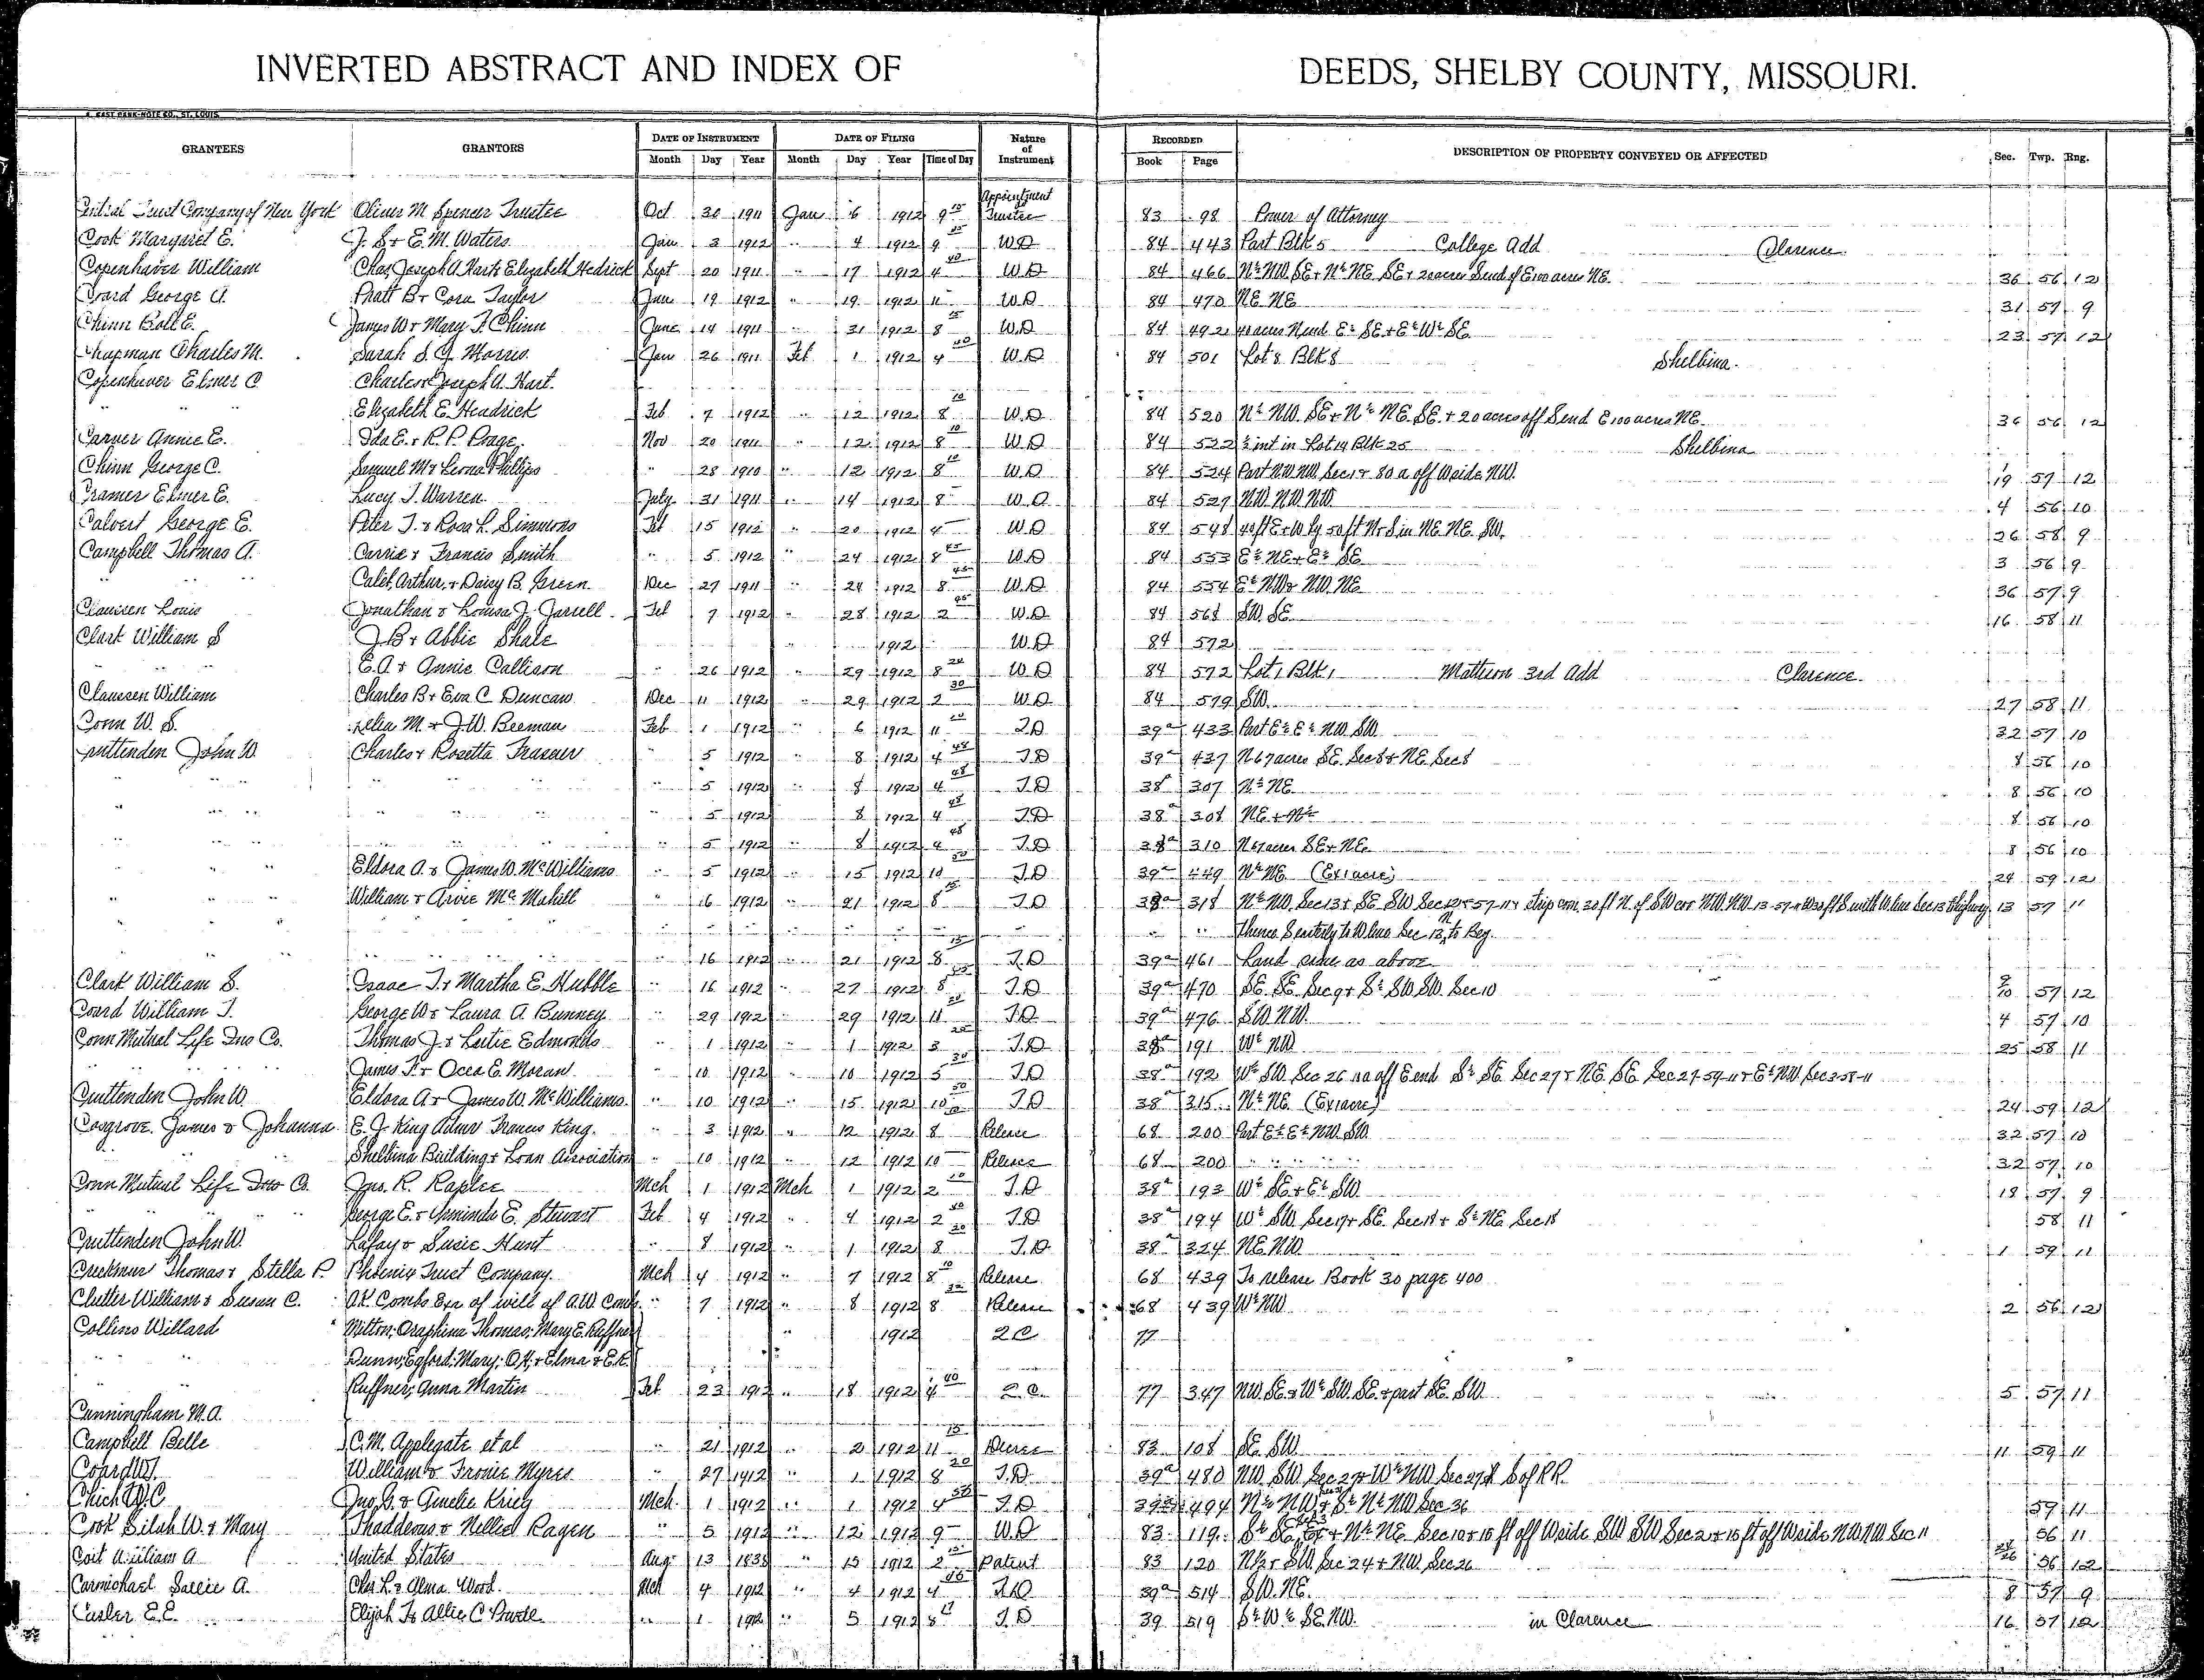 INVERTED ABSTRACT AND INDEX OF DEEDS, SHELBY COUNTY, MISSOURI.
GRANTEES GRANTORS DATE OF INSTRUMENT DATE OF FILING Nature of Instrument RECORDED DESCRIPTION OF PROPERTY CONVEYED OR AFFECTED Sec. Twp. Rng.
Month Day Year Month Day Year Time of Day Book Page
Central Trust Company of New York Oliver M Spencer Trustee Oct 30 1911 Jan 6 1912 9 15 Appointment Trustee 83 98 Power of Attorney
Cook Margaret E. J. S + E. M. Waters Jan 3 1912 " 4 1912 9 W.D 84 443 Part Blk 5 College Add Clarence
Copenhaver William Chas, Joseph A Hart & Elizabeth Hedrick Sept 20 1911 " 17 1912 4 40 W.D 84 466 N½ NW SE + N½ NE SE + 20 acres S end of E 100 acres NE 36 56 12
Coard George A. Pratt B + Cora Taylor Jan 19 1912 " 19 1912 11 W.D 84 470 NE NE 31 57 9
Chinn Roll E. James W + Mary F. Chinn June 14 1911 " 31 1912 8 15 W.D 84 492 40 acres N end E½ SE + E½ W½ SE 23 57 12
Chapman Charles M. Sarah S. J. Morris Jan 26 1911 Feb 1 1912 4 W.D 84 501 Lot 8 Blk 8 Shelbina
Copenhaver Elmer C Charles + Joseph A. Hart
" " Elizabeth E. Headrick Feb 7 1912 " 12 1912 8 10 W.D 84 520 N½ NW. SE + N½ NE. SE. + 20 acres off S end E 100 acres NE. 36 56 12
Carver Annie E. Ida E. + R. P. Poage Nov 20 1911 " 12 1912 8 10 W.D 84 522 ½ int in Lot 14 Blk 25 Shelbina
Chinn George C. Samuel M & Leona Phillips " 28 1910 " 12 1912 8 10 W.D 84 524 Part NW NW. Sec 1 + 80 a off W side NW. 57 12
Cramer Elmer E. Lucy J. Warren July 31 1911 " 14 1912 8 W.D 84 527 NW NW NW 4 56 10
Calvert George E. Peter T. & Rosa L. Simmons Feb 15 1912 " 20 1912 4 W.D 84 548 40 ft E + W by 50 ft N + S in NE. NE. SW. 26 58 9
Campbell Thomas A. Carrie & Francis Smith " 5 1912 " 24 1912 8 45 W.D 84 553 E½ NE + E½ SE 3 56 9
" " Caleb, Arthur, + Daisy B. Green Dec 27 1911 " 24 1912 8 45 W.D 84 554 E½ NW + NW. NE 36 57 9
Claussen Louis Jonathan & Louisa J. Jarrell Feb 7 1912 " 28 1912 2 45 W.D 84 568 SW. SE 16 58 11
Clark William S J. B + Abbie Shale 1912 W.D 84 572
" " E. A. + Annie Callison " 26 1912 " 29 1912 8 20 W.D 84 572 Lot 1 Blk 1 Mattison 3rd Add Clarence
Claussen William Charles B + Eva C Duncan Dec 11 1912 " 29 1912 2 30 W.D 84 579 SW. 27 58 11
Conn W. S. Lelia M. + J. W. Beeman Feb 1 1912 " 6 1912 11 39 a 433 Part E½ E½ NW. SW. 32 57 10
Cruttenden John W. Charles + Rosetta Frasuer " 5 1912 " 8 1912 4 48 T.D 39 a 437 N 67 acres SE. Sec 5 + NE Sec 8 8 56 10
" " " " 5 1912 " 8 1912 4 48 T.D 38 a 307 N½ NE 8 56 10
" " " " 5 1912 " 8 1912 4 48 T.D 38 a 308 8 56 10
" " " " 5 1912 " 8 1912 4 48 T.D 38 a 310 N 67 acres SE + NE 8 56 10
" " Eldora A. & James W. McWilliams " 5 1912 " 15 1912 10 50 T.D 39 a 449 N½ NE (Ex 1 acre) 24 59 12
" " William + Arvie McMahill " 16 1912 " 21 1912 8 15 T.D 38 a 318 N½ NW. Sec 13 + SE. SW Sec 12-57-11 + strip com. 20 ft N. of SW cor N.W. N.W. 13-57-11 S with W. line Sec 13 13 57 11
" " " " Thence S easterly to W. line Sec 13, to Beg.
" " " " 16 1912 " 21 1912 8 15 T.D 39 a 461 Land same as above
Clark William S. Isaac T. + Martha E. Hubble " 16 1912 " 27 1912 8 T.D 39 a 470 SE. SE. Sec 9 + S½ SW. SW. Sec 10 9/10 57 12
Coard William T. George W + Laura A. Bunney " 29 1912 " 29 1912 11 T.D 39 a 476 SW. NW. 4 57 10
Conn Mutual Life Ins Co. Thomas J. & Lutie Edmonds " 1 1912 " 1 1912 3 T.D 38 a 191 W½ NW 25 58 11
" " James F. + Occa E. Moran " 10 1912 " 10 1912 5 30 T.D 38 a 192 W½ SW. Sec 26 off E end S½ SE. Sec 27 + NE. SE. Sec 27-59-11 + E½ NW. Sec 3-58-11
Cruttenden John W. Eldora A + James W. McWilliams " 10 1912 " 15 1912 10 50 T.D 38 a 315 N½ NE (Ex 1 acre) 24 59 12
Cosgrove James & Johanna E. J. King Admr Francis King. " 3 1912 " 12 1912 8 Release 68 200 Part E½ E½ NW. SW. 32 57 10
Shelbina Building + Loan Association " 10 1912 " 12 1912 10 Release 68 200 " " " " 32 57 10
Conn Mutual Life Ins Co. Jno. R. Raplee Mch 1 1912 Mch 1 1912 2 10 T.D 38 a 193 W½ SE + E½ SW. 18 57 9
" " George E. & Arminda E. Stewart Feb 4 1912 " 4 1912 2 T.D 38 a 194 W½ SW. Sec 17 + SE. Sec 18 + S½ NE. Sec 18 58 11
Cruttenden John W. Lafay & Susie Hunt " 8 1912 " 1 1912 8 T.D. 38 a 324 NE NW. 1 59 11
Creekmur Thomas + Stella P. Phoenix Trust Company. Mch 4 1912 " 7 1912 8 10 Release 68 439 To release Book 30 page 400
Clutter William & Susan C. A.K. Combs Exr of will of A.W. Combs " 7 1912 " 8 1912 8 Release 68 439 W½ NW 2 56 12
Collins Willard Milton; Oraphina Thomas; Mary E. Ruffner " 1912 2 C 77
" " Dunn; Egford; Mary; O.K; + Elma + E.R.
Ruffner; Anna Martin Feb 23 1912 " 18 1912 4 40 2 C. 77 347 NW. SE. + W½ SW. SE. + part SE. SW. 5 57 11
Cunningham M. A.
Campbell Belle C. M. Applegate et al " 21 1912 " 2 1912 11 15 83 108 SE SW 11 59 11
Coard W.T. William & Fronie Myres " 27 1912 " 1 1912 8 20 T.D. 39 a 480 NW. SW. Sec 27 + W½ NW Sec 27 S of RR
Chick W.C. Jno. G. & Amelia Krieg Mch. 1 1912 " 1 1912 4 T.D 494 Sec 36 59 11
Cook Silah W. & Mary Thadderus & Nellie Ragen " 5 1912 " 12 1912 9 W.D 83 119 + N½ NE Sec 10 + 15 ft off W side SW SW Sec 2 + 15 ft off W side NW NW Sec 11 56 11
Coit William A United States Aug 13 1838 " 15 1912 2 15 Patent 83 120 N½ + SW. Sec 24 + NW. Sec 26 24/26 56 12
Carmichael Sallie A. Chas L. & Alma Wood Mch 4 1912 " 4 1912 4 T.D 39 a 514 SW. NE. 8 57 9
Casler E.E. Elijah T. & Allie C. " 1 1912 " 5 1912 8 T.D 39 519 S½ W½ SE. NW. in Clarence 16 57 12